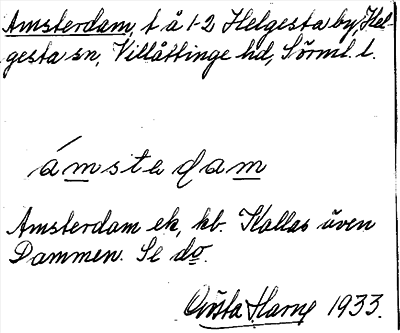 Amsterdam, t å 1-2 Helgesta by, Hel-
gesta sn, Villåttinge hd, Sörml. l.
ámstedam
Amsterdam ek, kb. Kallas även
Dammen. Se do.
Gösta Harne 1933.